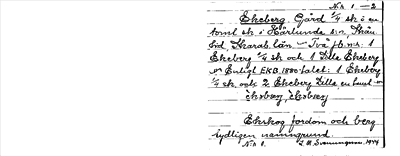 N:r 1 – 2
Ekeberg Gård 1/4 sk o en
tomt sk. i Härlunda s:n, Skån
Skarab. län – Två jb.nr: 1
Ekeberg 1/4 sk och 1 Lilla Ekeberg
Enligt EKB 1880-talet: 1 Ekeberg
1/4 sk, och 2 Ekeberg Lilla, en
Ekskog fordom och berg
tydligen namngrund
N:r 1. S. A. Svenningson, 1944